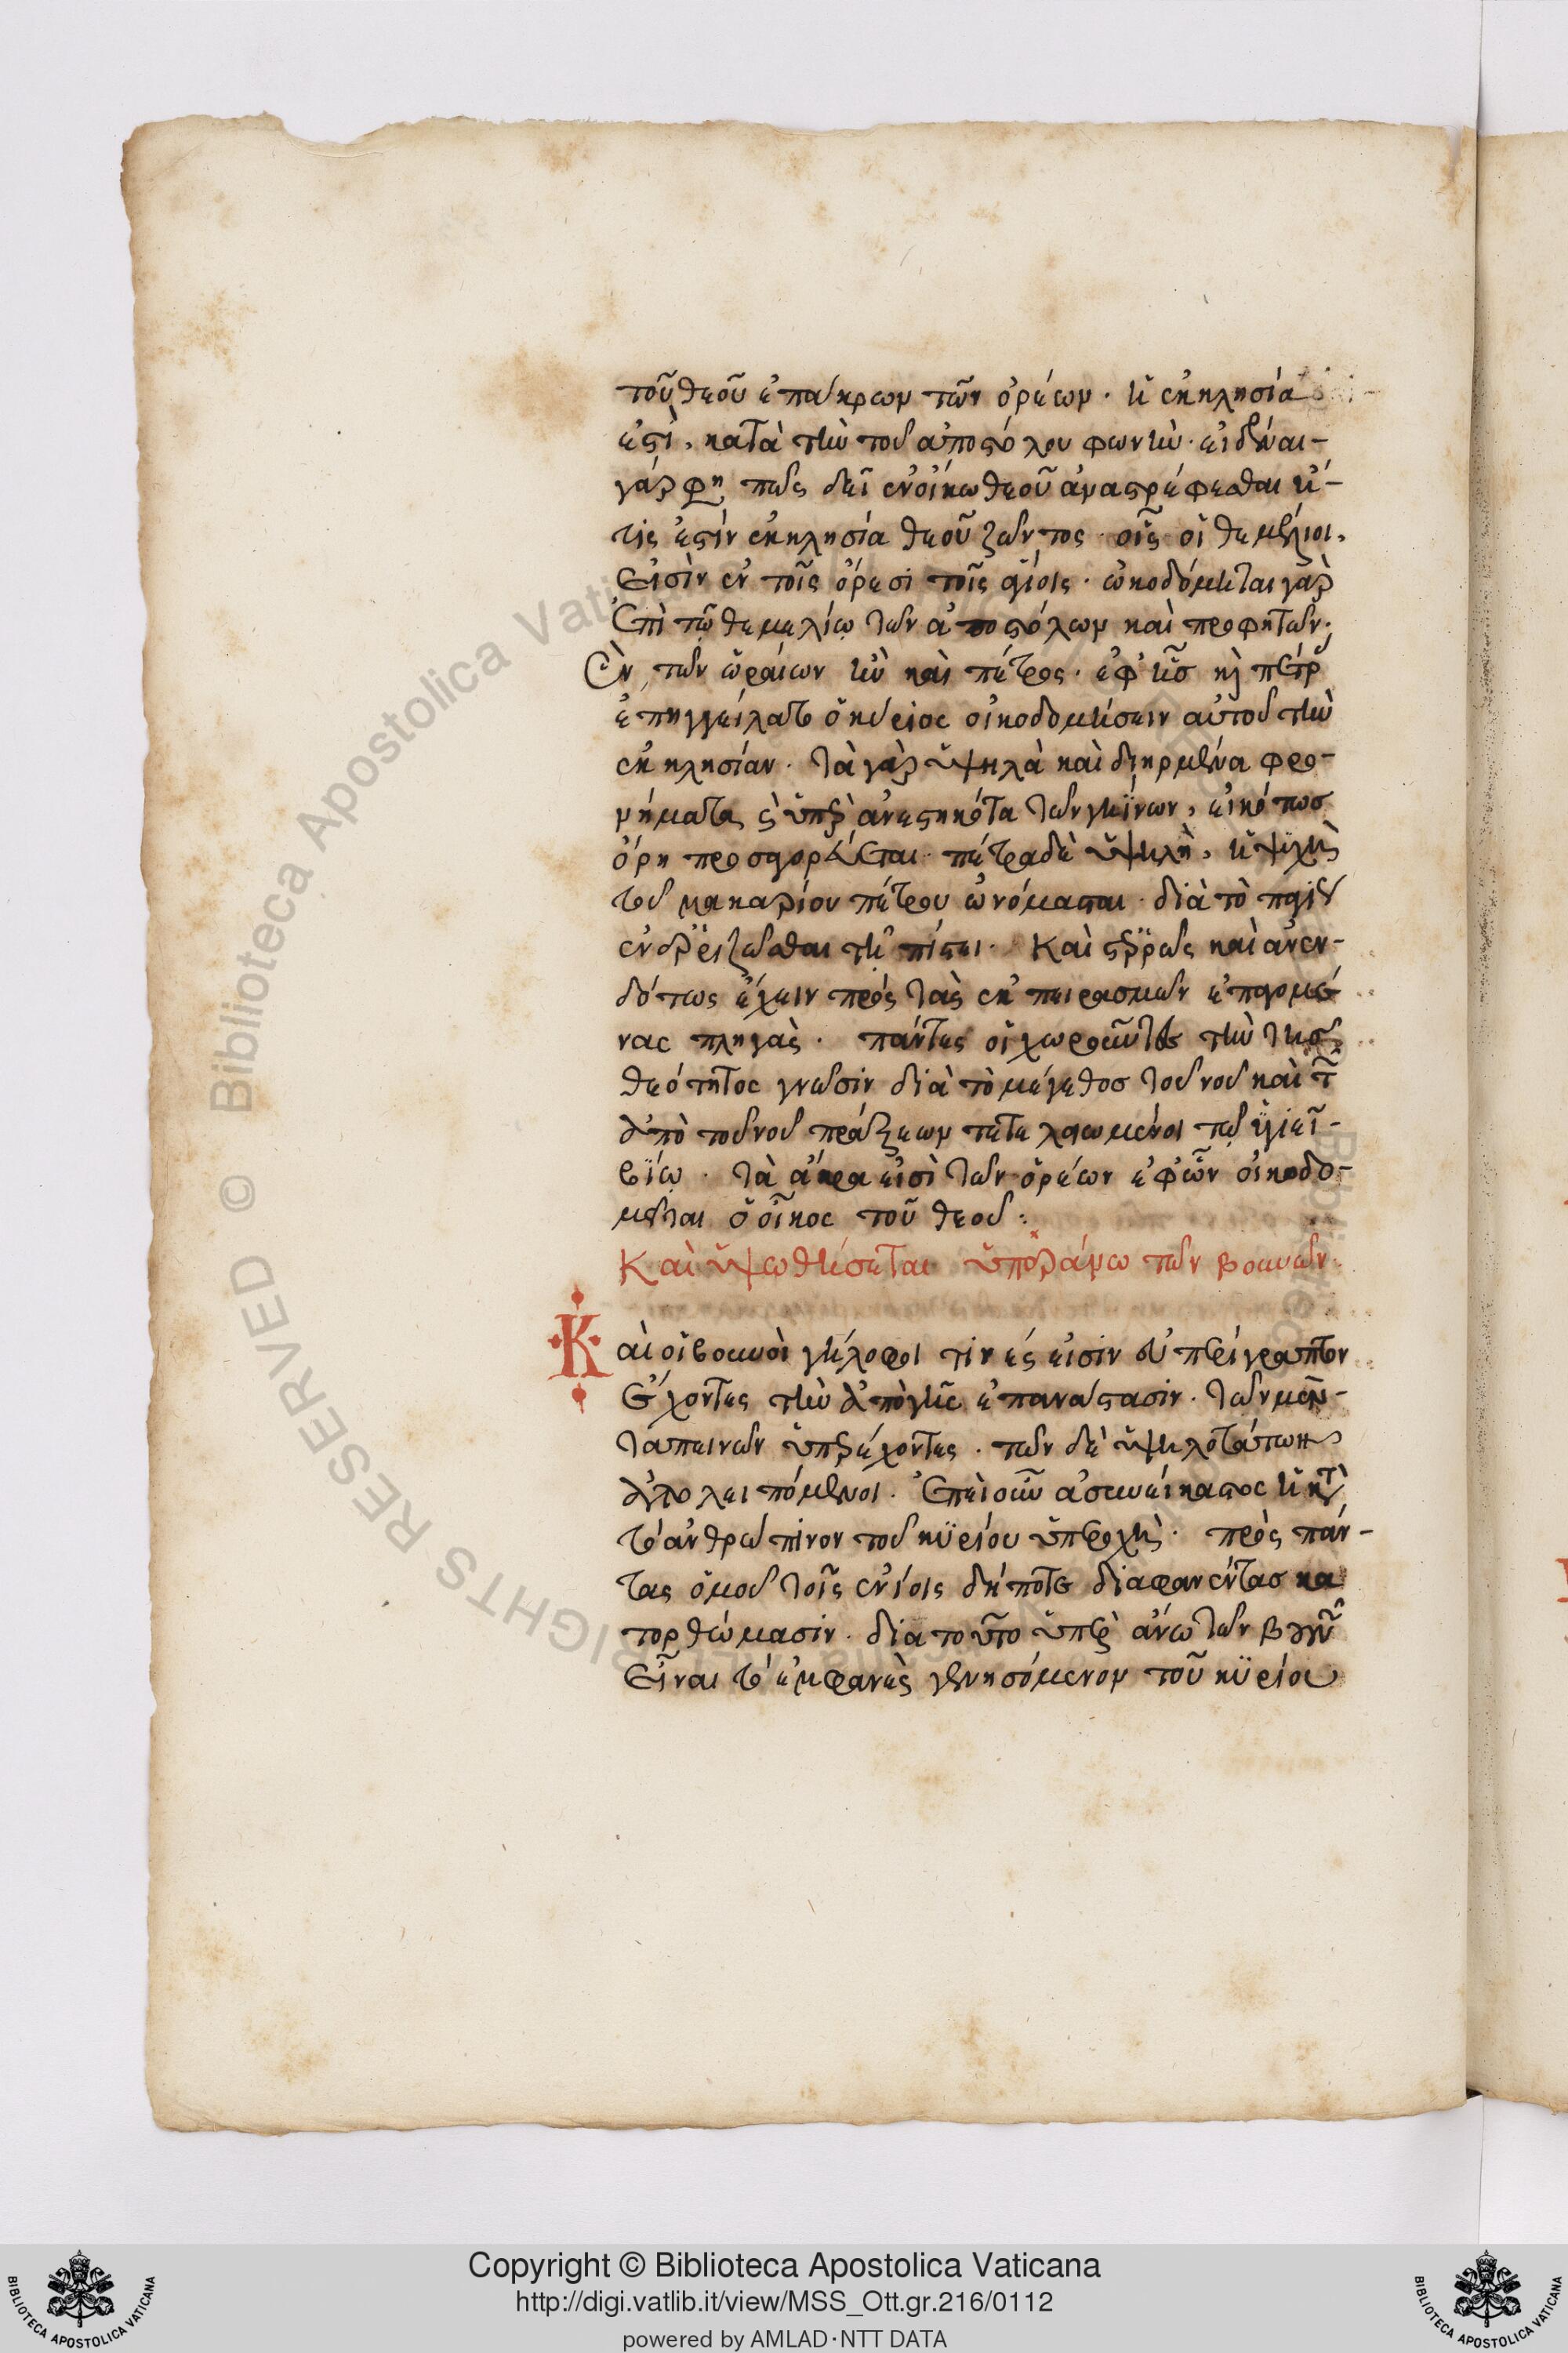 τοῦ θεοῦ ἐπάκρων τῶν ὀρέων · ἡ ἐκκλησία
ἐστὶ, κατὰ τὴν τοῦ ἀποστόλου φωνήν · εἰδέναι-
γάρ φη πῶς δεῖ ἐν οἴκω θεοῦ ἀναστρέφεσθαι ἥ-
τις ἐστὶν ἐκκλησία θεοῦ ζῶντος · ἧς οἱ θεμέλιοι,
Εἰσὶν ἐν τοῖς ὄρεσι τοῖς ἁγίοις · ὠκοδόμηται γὰρ
Ἐπὶ τῷ θεμελίῳ τῶν ἀποστόλων καὶ προφητῶν ·
Ἓν τῶν ὡραίων ἦν καὶ πέτρος · ἐφ' ἧς κὴ πέτρ
ἐπηγγείλατο ὁ κύριος οἰκοδομήσειν αὐτοῦ τὴν
ἐκκλησίαν · τὰ γὰρ ὑψηλὰ καὶ διηρμένα φρο-
νήματα, καὶ ὑπὲρ ἀνεστηκότα τῶν γηΐνων, εἰκότωσ
ὄρη προσαγορεύεται · πέτρα δὲ ὑψηλὴ, ἡ ψυχὴ
τοῦ μακαρίου πέτρου ὠνόμασται · διὰ τὸ παγί
ἐνερριζῶσθαι τῇ πίστει · Καὶ στερρῶς καὶ ἀνεν-
δότως ἔχειν πρὸς τὰς ἐκ πειρασμῶν ἐπαγομέ
νας πληγὰς · πάντες οἱ χωροῦντες τὴν τῆς
θεότητος γνῶσιν διὰ τὸ μέγεθοσ τοῦ νοῦ καὶ τ
ἀπὸ τοῦ νοῦ πράξεων τετελαιωμένοι τῷ ὑγιεῖ-
βίῳ · τὰ ἄκρα εἰσὶ τῶν ὀρέων ἐφ' ὧν οἰκοδο-
μεῖται ὁ οἶκος τοῦ θεοῦ :
Καὶ ὑψωθήσεται ὑπεράνω τῶν βουνῶν ·
Καὶ οἱ βουνοὶ γήλοφοι τινές εἰσιν εὐπερίγραπτον
Ἔχοντες τὴν ἀπὸ γῆς ἐπανάστασιν · τῶν μὲν-
ταπεινῶν ὑπερέχοντες · τῶν δὲ ὑψηλοτάτων
ἀπολειπόμενοι · Ἐπεὶ οὖν ἀσυνείκαστος ἡ κατ
τὸ ἀνθρώπινον τοῦ κυρίου ὑπεροχὴ · πρὸς πάν-
τας ὁμοῦ τοῖς ἐνίοις δήποτε διαφανέντασ κα
τορθώμασιν · διὰ τοῦτο ὑπὲρ ἄνω τῶν βουν
Εἶναι τὸ ἐμφανὲς γεννησόμενον τοῦ κυρίου
Copyright © Biblioteca Apostolica Vaticana
http://digi.vatlib.it/view/MSS_Ott.gr.216/0112
powered by AMLAD·NTT DATA